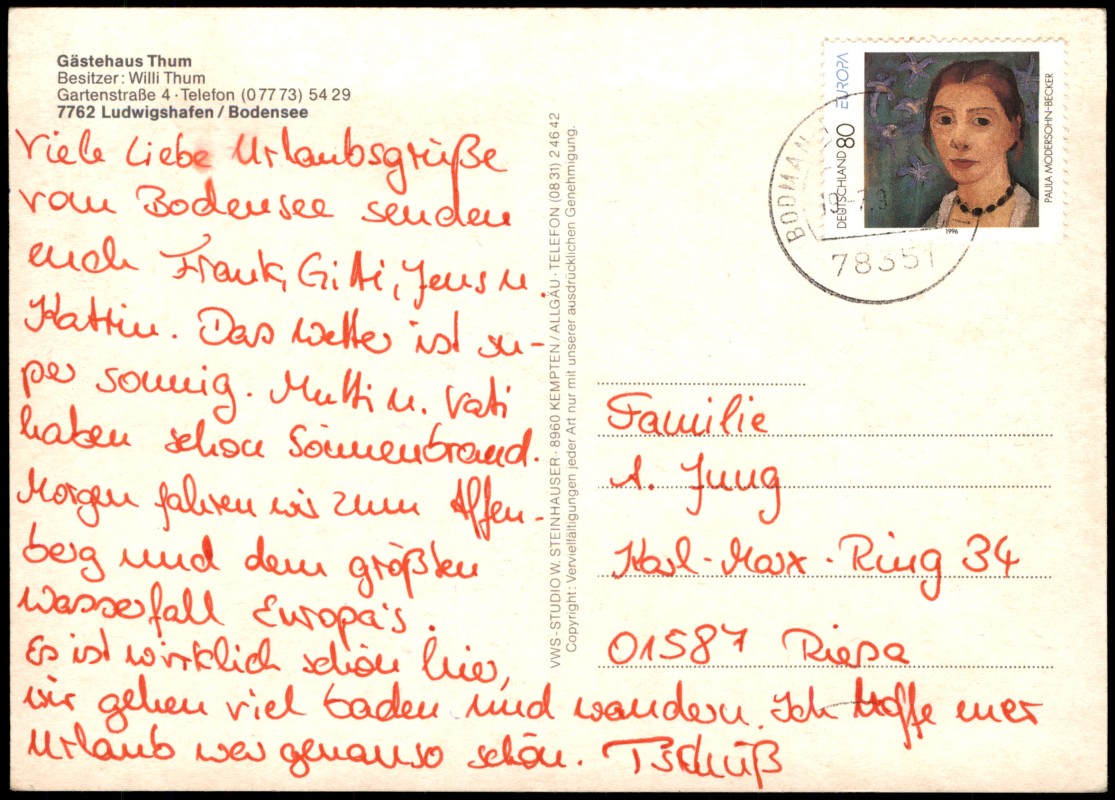 Gästehaus Thum
Besitzer: Willi Thum
Gartenstraße 4 · Telefon (07773) 5429
7762 Ludwigshafen / Bodensee
Viele Liebe Urlaubsgrüße
vom Bodensee senden
euch Frank, Gitti, Jens u.
Kattin. Das Wetter ist su-
per sonnig. Mutti u. Vati
haben schon Sonnenbrand.
Morgen fahren wir zum Affen-
berg und dem größten
Wasserfall Europa's.
Es ist wirklich schön hier,
wir gehen viel baden und wandern. Ich hoffe euer
Urlaub war genauso schön. Tschüß
VWS-STUDIO W. STEINHAUSER · 8960 KEMPTEN / ALLGÄU · TELEFON (0831) 24642
Copyright: Vervielfältigungen jeder Art nur mit unserer ausdrücklichen Genehmigung.
EUROPA
DEUTSCHLAND 80
PAULA MODERSOHN-BECKER
1996
BODMAN
78351
Familie
A. Jung
Karl-Marx-Ring 34
01587 Riesa